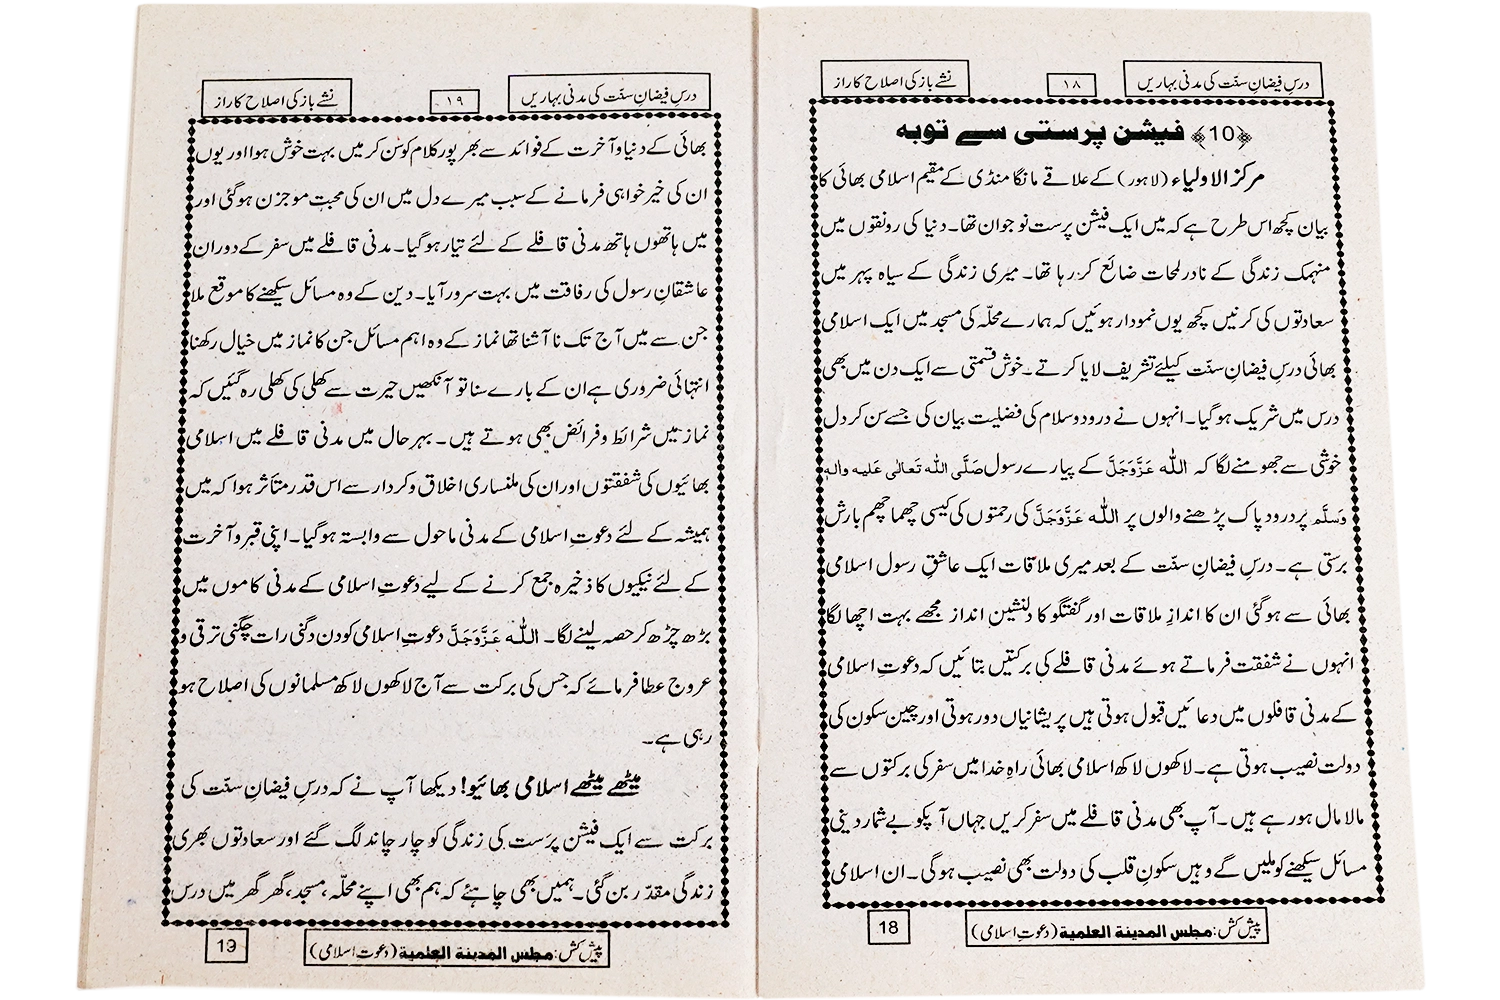 درسِ فیضانِ سنّت کی مدنی بہاریں
۱۸
نشے باز کی اصلاح کا راز
﴿10﴾ فیشن پرستی سے توبہ
مرکز الاولیاء (لاہور) کے علاقے مانگا منڈی کے مقیم اسلامی بھائی کا
بیان کچھ اس طرح ہے کہ میں ایک فیشن پرست نوجوان تھا۔ دنیا کی رونقوں میں
منہمک زندگی کے نادر لمحات ضائع کر رہا تھا۔ میری زندگی کے سیاہ پہر میں
سعادتوں کی کرنیں کچھ یوں نمودار ہوئیں کہ ہمارے محلّہ کی مسجد میں ایک اسلامی
بھائی درسِ فیضانِ سنّت کیلئے تشریف لایا کرتے۔ خوش قسمتی سے ایک دن میں بھی
درس میں شریک ہو گیا۔ انہوں نے درود و سلام کی فضلیت بیان کی جسے سن کر دل
خوشی سے جھومنے لگا کہ اللّٰہ عَزَّوَجَلَّ کے پیارے رسول صَلَّی اللّٰہ تَعالٰی عَلیه واٰلهٖ
وَسَلَّم پر درود پاک پڑھنے والوں پر اللّٰہ عَزَّوَجَلَّ کی رحمتوں کی کیسی چھما چھم بارش
برستی ہے۔ درسِ فیضانِ سنّت کے بعد میری ملاقات ایک عاشقِ رسول اسلامی
بھائی سے ہو گئی ان کا اندازِ ملاقات اور گفتگو کا دلنشین انداز مجھے بہت اچھا لگا
انہوں نے شفقت فرماتے ہوئے مدنی قافلے کی برکتیں بتائیں کہ دعوتِ اسلامی
کے مدنی قافلوں میں دعائیں قبول ہوتی ہیں پریشانیاں دور ہوتی اور چین سکون کی
دولت نصیب ہوتی ہے۔ لاکھوں لاکھ اسلامی بھائی راہِ خدا میں سفر کی برکتوں سے
مالا مال ہو رہے ہیں۔ آپ بھی مدنی قافلے میں سفر کریں جہاں آپکو بے شمار دینی
مسائل سیکھنے کو ملیں گے وہیں سکونِ قلب کی دولت بھی نصیب ہو گی۔ ان اسلامی
پیش کش: مجلس المدینة العلمیة (دعوتِ اسلامی)
18
درسِ فیضانِ سنّت کی مدنی بہاریں
۱۹
نشے باز کی اصلاح کا راز
بھائی کے دنیا و آخرت کے فوائد سے بھرپور کلام کو سن کر میں بہت خوش ہوا اور یوں
ان کی خیر خواہی فرمانے کے سبب میرے دل میں ان کی محبت موجزن ہو گئی اور
میں ہاتھوں ہاتھ مدنی قافلے کے لئے تیار ہو گیا۔ مدنی قافلے میں سفر کے دوران
عاشقانِ رسول کی رفاقت میں بہت سرور آیا۔ دین کے وہ مسائل سیکھنے کا موقع ملا
جن سے میں آج تک نا آشنا تھا نماز کے وہ اہم مسائل جن کا نماز میں خیال رکھنا
انتہائی ضروری ہے ان کے بارے سنا تو آنکھیں حیرت سے کھلی کی کھلی رہ گئیں کہ
نماز میں شرائط و فرائض بھی ہوتے ہیں۔ بہرحال میں مدنی قافلے میں اسلامی
بھائیوں کی شفقتوں اور ان کی ملنساری اخلاق و کردار سے اس قدر متأثر ہوا کہ میں
ہمیشہ کے لئے دعوتِ اسلامی کے مدنی ماحول سے وابستہ ہو گیا۔ اپنی قبر و آخرت
کے لئے نیکیوں کا ذخیرہ جمع کرنے کے لیے دعوتِ اسلامی کے مدنی کاموں میں
بڑھ چڑھ کر حصہ لینے لگا۔ اللّٰہ عَزَّوَجَلَّ دعوتِ اسلامی کو دن دگنی رات چگنی ترقی و
عروج عطا فرمائے کہ جس کی برکت سے آج لاکھوں لاکھ مسلمانوں کی اصلاح ہو
رہی ہے۔
میٹھے میٹھے اسلامی بھائیو! دیکھا آپ نے کہ درسِ فیضانِ سنّت کی
برکت سے ایک فیشن پرست کی زندگی کو چار چاند لگ گئے اور سعادتوں بھری
زندگی مقدّر بن گئی۔ ہمیں بھی چاہئے کہ ہم بھی اپنے محلّہ، مسجد، گھر گھر میں درس
پیش کش: مجلس المدینة العلمیة (دعوتِ اسلامی)
19